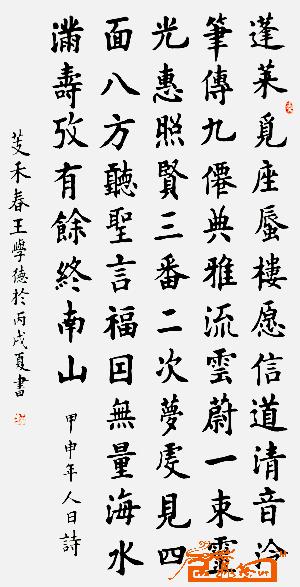 蓬萊覓座蜃樓愿信道清音泠
筆傳九僊典雅流雲蔚一束靈
光惠照賢三番二次夢處見四
面八方聽聖言福田無量海水
滿壽攷有餘終南山
甲申年人日詩
芰禾春王學德於丙戌夏書